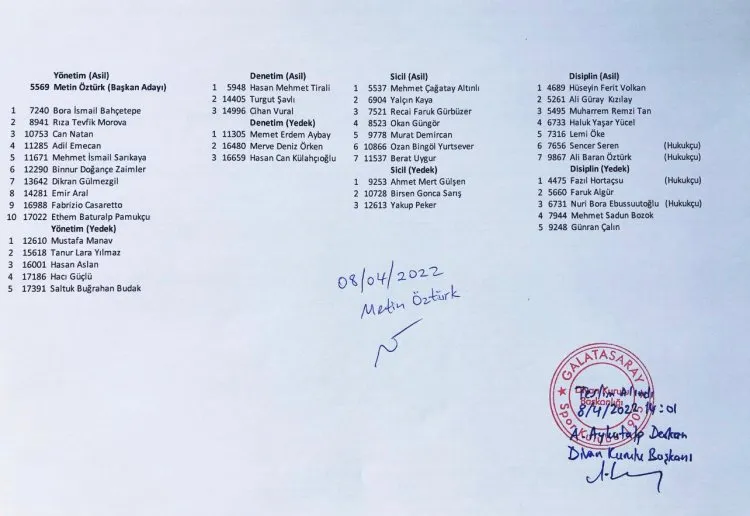 Yönetim (Asil)
5569 Metin Öztürk (Başkan Adayı)
1 7240 Bora İsmail Bahçetepe
2 8941 Rıza Tevfik Morova
3 10753 Can Natan
4 11285 Adil Emecan
5 11671 Mehmet İsmail Sarıkaya
6 12290 Binnur Doğançe Zaimler
7 13642 Dikran Gülmezgil
8 14281 Emir Aral
9 16988 Fabrizio Casaretto
10 17022 Ethem Baturalp Pamukçu
Yönetim (Yedek)
1 12610 Mustafa Manav
2 15618 Tanur Lara Yılmaz
3 16001 Hasan Aslan
4 17186 Hacı Güçlü
5 17391 Saltuk Buğrahan Budak
Denetim (Asil)
1 5948 Hasan Mehmet Tirali
2 14405 Turgut Şavlı
3 14996 Cihan Vural
Denetim (Yedek)
1 11305 Memet Erdem Aybay
2 16480 Merve Deniz Örken
3 16659 Hasan Can Külahçıoğlu
Sicil (Asil)
1 5537 Mehmet Çağatay Altınlı
2 6904 Yalçın Kaya
3 7521 Recai Faruk Gürbüzer
4 8523 Okan Güngör
5 9778 Murat Demircan
6 10866 Ozan Bingöl Yurtsever
7 11537 Berat Uygur
Sicil (Yedek)
1 9253 Ahmet Mert Gülşen
2 10728 Birsen Gonca Sarış
3 12613 Yakup Peker
Disiplin (Asil)
1 4689 Hüseyin Ferit Volkan
2 5261 Ali Güray Kızılay
3 5495 Muharrem Remzi Tan
4 6733 Haluk Yaşar Yücel
5 7316 Lemi Öke
6 7656 Sencer Seren (Hukukçu)
7 9867 Ali Baran Öztürk (Hukukçu)
Disiplin (Yedek)
1 4475 Fazıl Hortaçsu (Hukukçu)
2 5660 Faruk Algür
3 6731 Nuri Bora Ebussuutoğlu (Hukukçu)
4 7944 Mehmet Sadun Bozok
5 9248 Günran Çalın
08/04/2022
Metin Öztürk
GALATASARAY
Spor Kulübü 1905
Divan Kurulu
Başkanlığı
Teslim Alındı
8/4/2022 14:01
A. Aykutalp Derkan
Divan Kurulu Başkanı